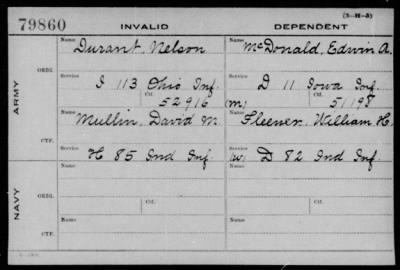 (3-H-3)
79860 INVALID DEPENDENT
Name Durant, Nelson Name McDonald, Edwin A.
ARMY
ORIG.
Service I 113 Ohio Inf. Service D 11 Iowa Inf.
Ctf. 52916 (m) Ctf. 51198
Name Mullin, David M. Name Fleener, William H.
CTF.
Service H 85 Ind Inf. Service (w) D 82 Ind Inf.
NAVY
ORIG.
Name Ctf. Name Ctf.
Service Service
CTF.
Name Name
Service Service